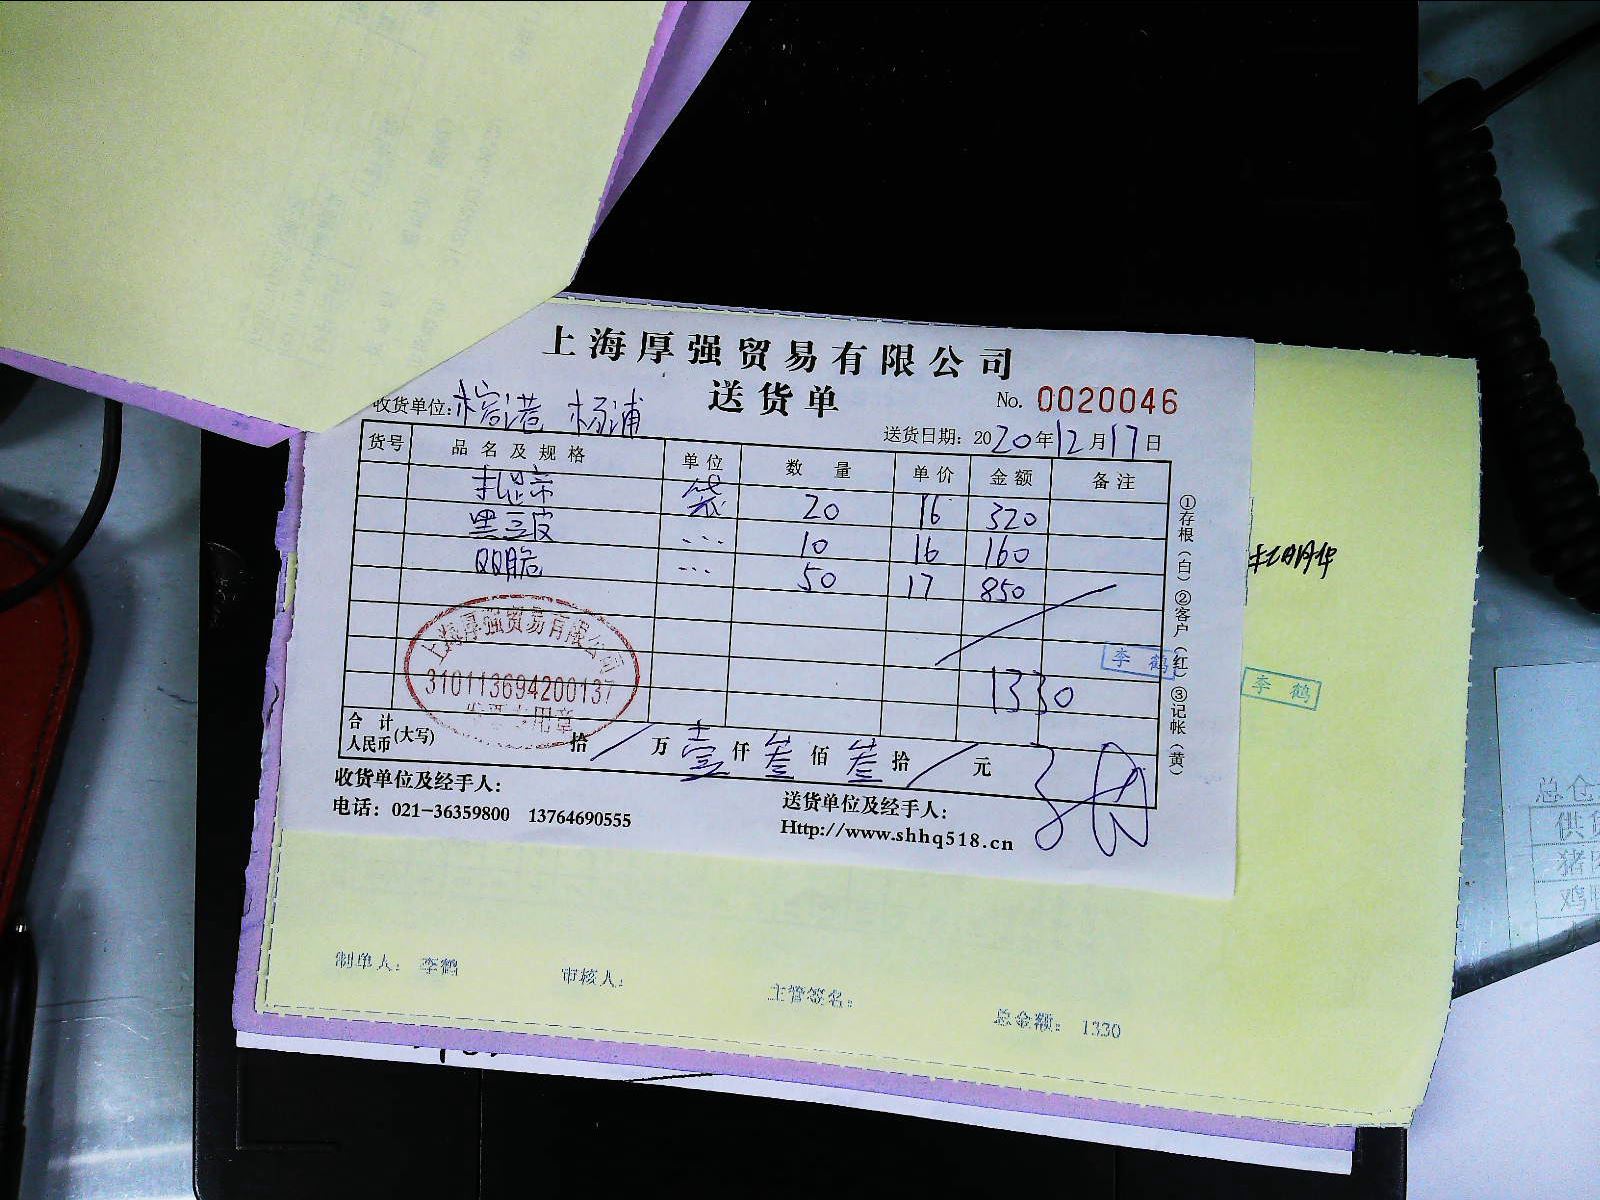 上海厚强贸易有限公司
送货单
No. 0020046
收货单位: 榕港 杨浦
送货日期: 2020年12月17日
货号 品名及规格 单位 数量 单价 金额 备注
袋 20 16 320
黑豆皮 … 10 16 160
QQ脆 … 50 17 850
1330
上海厚强贸易有限公司
310113694200137
发票专用章
合计人民币(大写) 拾/万壹仟叁佰叁拾/元
收货单位及经手人:
电话: 021-36359800 13764690555
送货单位及经手人:
Http://www.shhq518.cn
①存根(白)②客户(红)③记帐(黄)
李鹤
李鹤
制单人: 李鹤
审核人:
主管签名:
总金额: 1330
总仓
猪
鸡